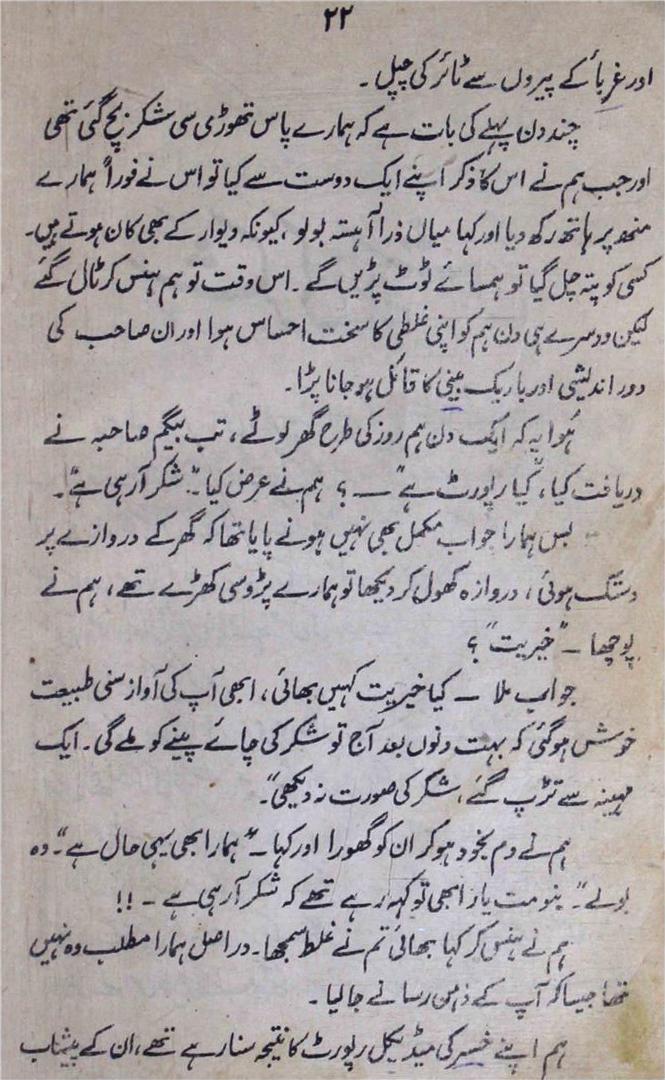 ۲۲
اور غرباً کے پیروں سے ٹائر کی چپل ۔
چند دن پہلے کی بات ہے کہ ہمارے پاس تھوڑی سی شکر بچ گئی تھی
اور جب ہم نے اس کا ذکر اپنے ایک دوست سے کیا تو اس نے فوراً ہمارے
منھ پر ہاتھ رکھ دیا اور کہا میاں ذرا آہستہ بولو ، کیونکہ دیوار کے بھی کان ہوتے ہیں۔
کسی کو پتہ چل گیا تو ہمسائے ٹوٹ پڑیں گے ۔ اس وقت تو ہم ہنس کر ٹال گئے
لیکن دوسرے ہی دن ہم کو اپنی غلطی کا سخت احساس ہوا اور ان صاحب کی
دور اندیشی اور باریک بینی کا قائل ہو جانا پڑا۔
ہُوا یہ کہ ایک دن ہم روز کی طرح گھر لوٹے ، تب بیگم صاحبہ نے
دریافت کیا، کیا رپورٹ ہے" ــ ؟ ہم نے عرض کیا " شکر آ رہی ہے"۔
بس ہمارا جواب مکمل بھی نہیں ہونے پایا تھا کہ گھر کے دروازے پر
دستک ہوئی ، دروازہ کھول کر دیکھا تو ہمارے پڑوسی کھڑے تھے ، ہم نے
پوچھا ــ "خیریت" ؟
جواب ملا ــ کیا خیریت کہیں بھائی ، ابھی آپ کی آواز سنی طبیعت
خوش ہو گئی کہ بہت دنوں بعد آج تو شکر کی چائے پینے کو ملے گی ۔ ایک
مہینہ سے تڑپ گئے ، شکر کی صورت نہ دیکھی"۔
ہم نے دم بخود ہو کر ان کو گھورا اور کہا ــ" ہمارا بھی یہی حال ہے"۔ وہ
بولے" بنو مت یار ابھی تو کہہ رہے تھے کہ شکر آ رہی ہے ــ !!
ہم نے ہنس کر کہا بھائی تم نے غلط سمجھا۔ دراصل ہمارا مطلب وہ نہیں
تھا جیسا کہ آپ کے ذہن رسا نے جا لیا ۔
ہم اپنے خسر کی میڈیکل رپورٹ کا نتیجہ سنا رہے تھے، ان کے پیشاب